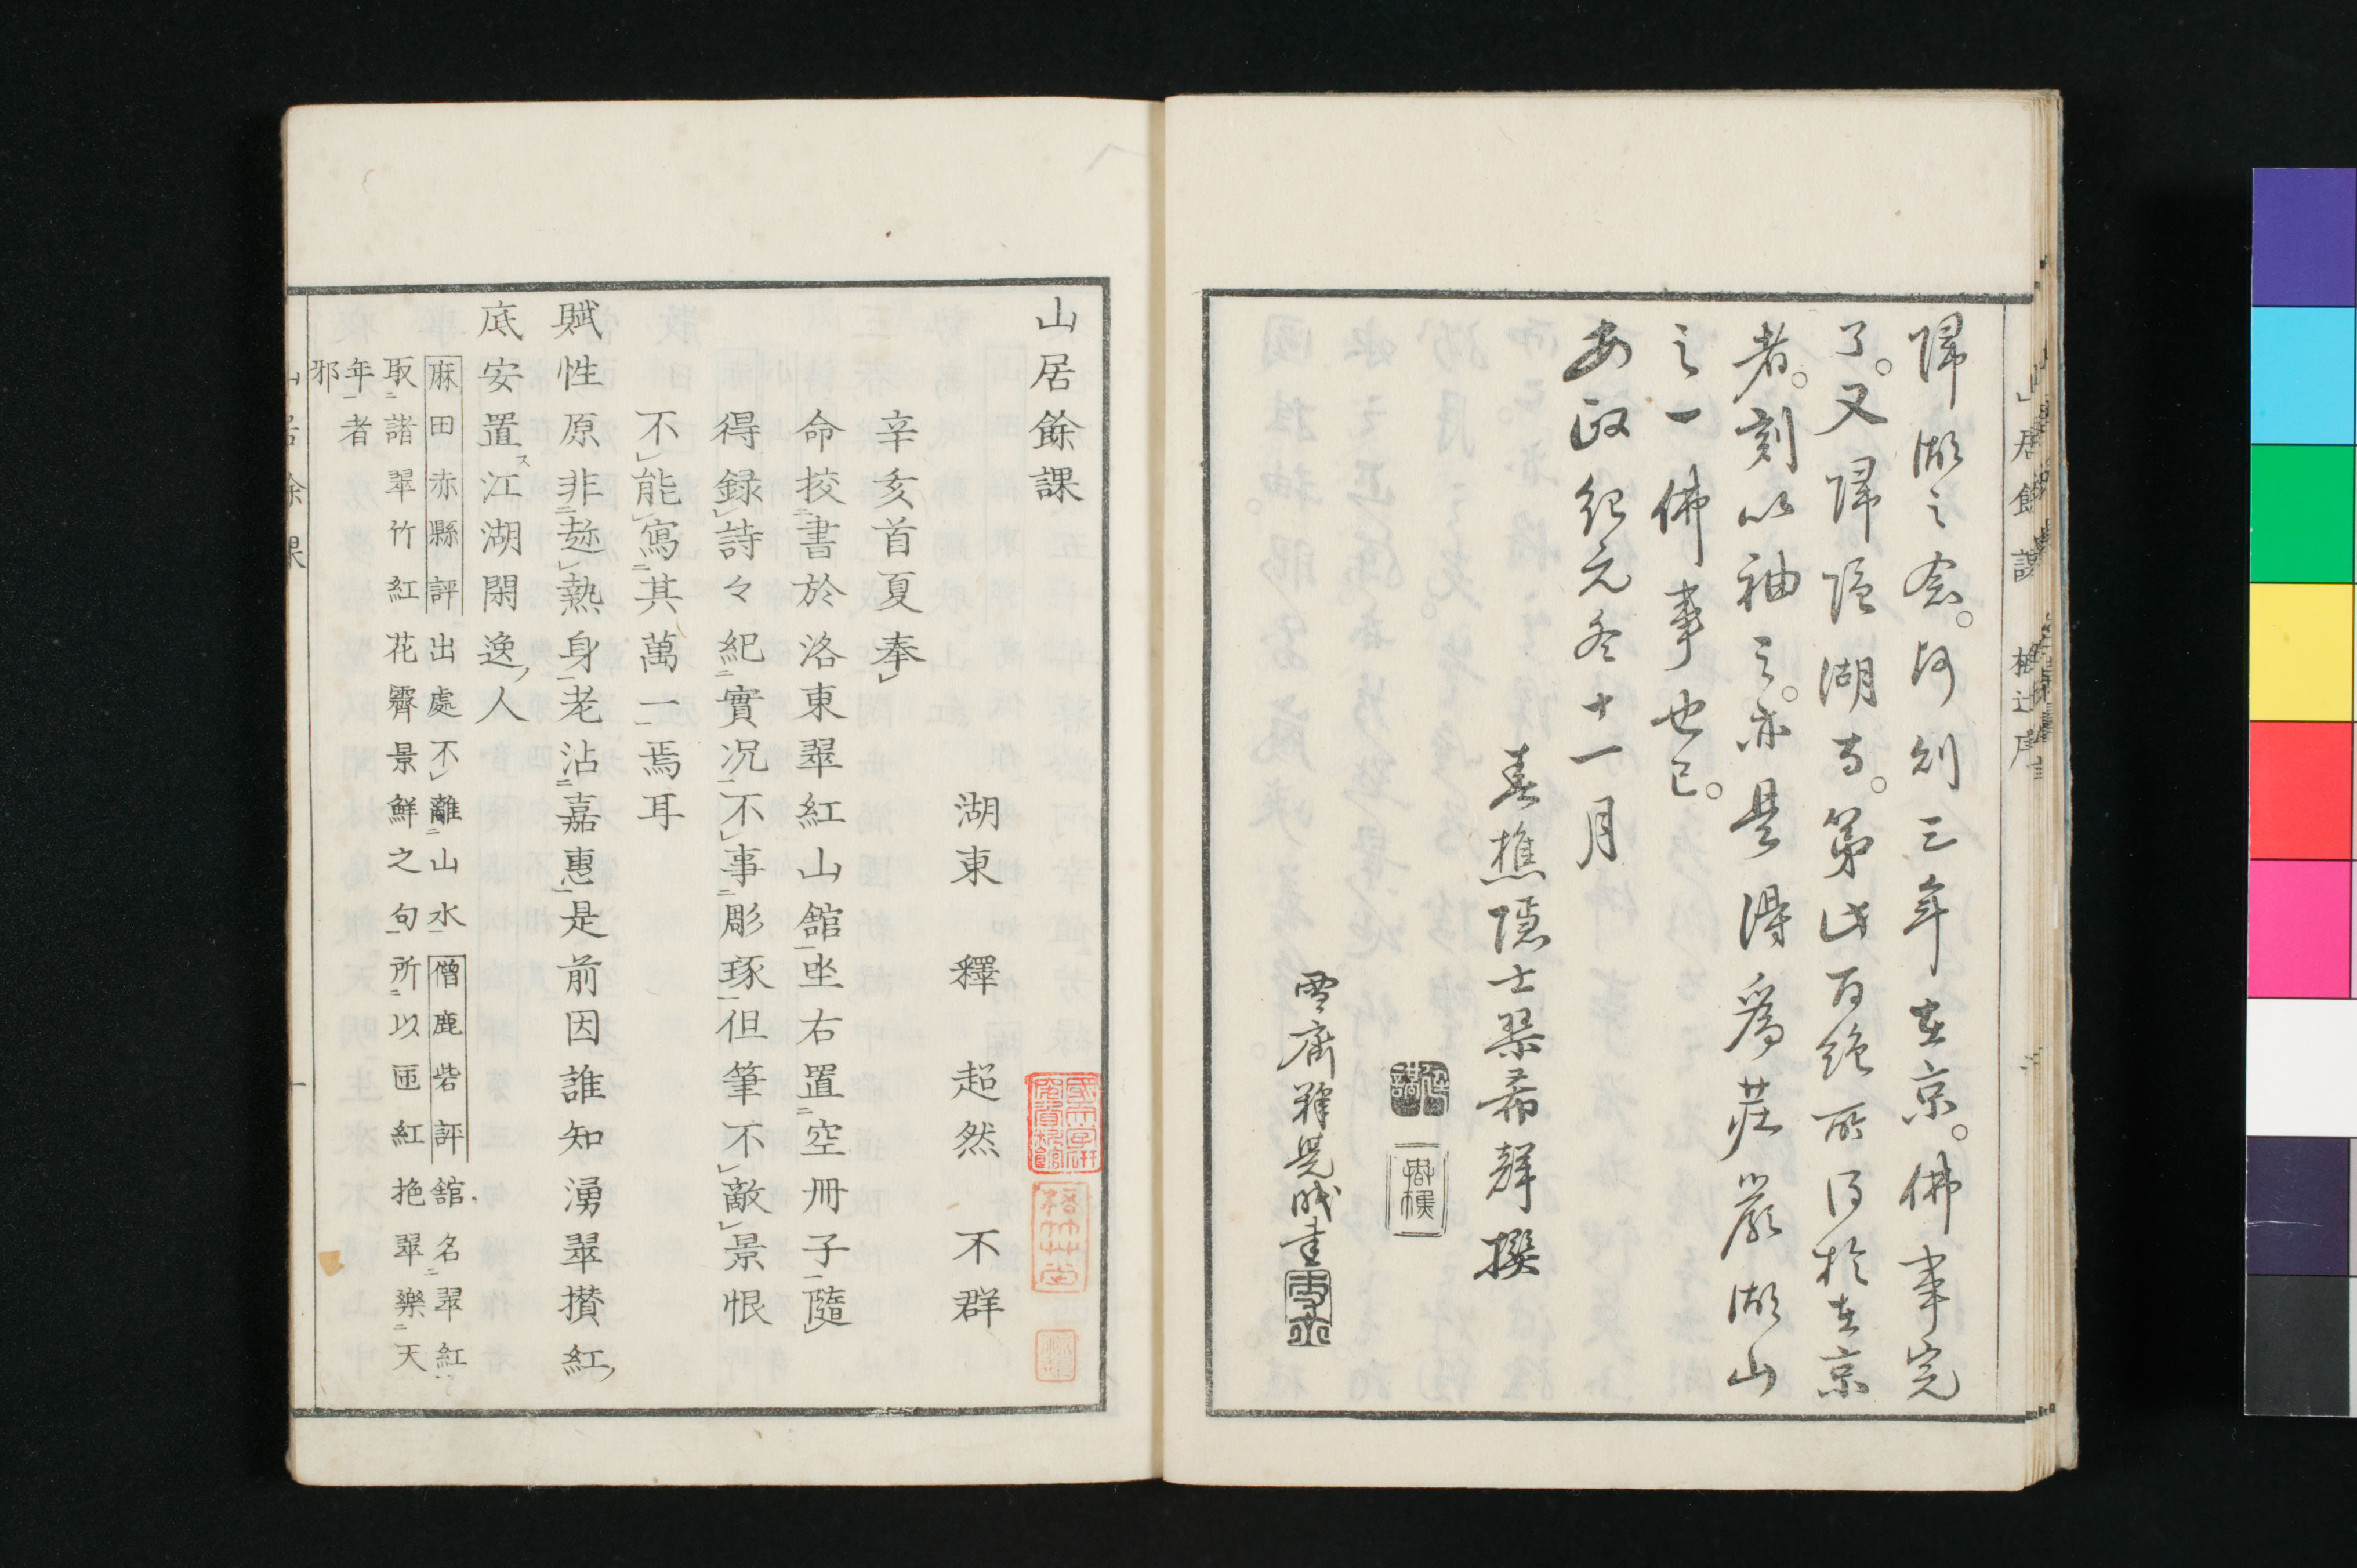 歸湖之念。何則三年在京。佛事完
了。又歸隱湖寺。第此百絶所得於在京
者。刻以袖之。亦是得爲莊嚴湖山
之一佛事也已。
安政紀元冬十一月
春樵隱士梁希聲撰
雪齋釋晃城書
山居餘課
湖東 釋 超然 不群
辛亥首夏奉
命挍書於洛東翠紅山舘坐右置空冊子隨
得録詩々紀實況不事彫琢但筆不敵景恨
不能寫其萬一焉耳
賦性原非趂熱身老沾嘉惠是前因誰知湧翠攅紅
底安置江湖閑逸人
麻田赤縣評出處不離山水僧鹿砦評舘名翠紅
取諧翠竹紅花霽景鮮之句所以匝紅抱翠樂天
年者
邪
山居餘課 一